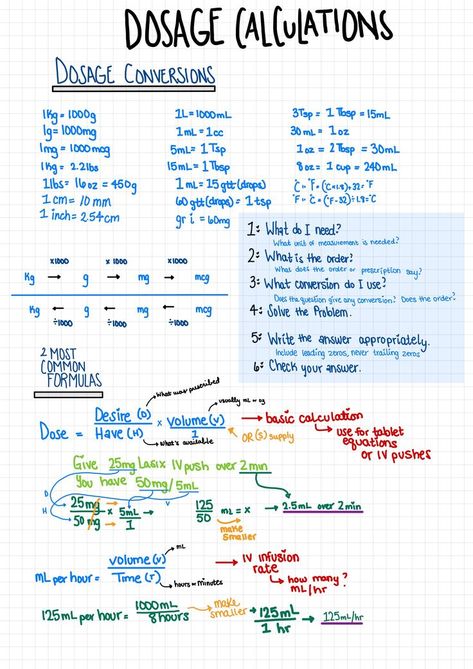 DOSAGE CALCULATIONS
DOSAGE CONVERSIONS
1Kg = 1000g
1g = 1000mg
1mg = 1000mcg
1Kg = 2.2lbs
1lbs = 16oz = 450g
1cm = 10mm
1 inch = 2.54cm
1L = 1000mL
1mL = 1cc
5mL = 1Tsp
15mL = 1Tbsp
1mL = 15gtt(drops)
60gtt(drops) = 1tsp
gr i = 60mg
3Tsp = 1 Tbsp = 15mL
30mL = 1oz
1oz = 2Tbsp = 30mL
8oz = 1 cup = 240mL
°C → °F = (°C×1.8)+32 = °F
°F → °C = (°F-32)÷1.8 = °C
×1000 ×1000 ×1000
Kg → g → mg → mcg
Kg ← g ← mg ← mcg
÷1000 ÷1000 ÷1000
1: What do I need?
What unit of measurement is needed?
2: What is the order?
What does the order or prescription say?
3: What conversion do I use?
Does the question give any conversion? Does the order?
4: Solve the Problem.
5: Write the answer appropriately.
Include leading zeros, never trailing zeros
6: Check your answer.
2 MOST
COMMON
FORMULAS
What was prescribed
usually mL or g
Dose = Desire (D) / Have (H) × Volume (V) / 1
what's available
OR (S) supply
basic calculation
use for tablet
equations
or IV pushes
Give 25mg Lasix IV push over 2 min
You have 50mg/5mL
D
H
V
25mg / 50mg × 5mL / 1 → 125 / 50 mL = x → 2.5mL over 2min
make
smaller
mL per hour = Volume (V) / Time (T)
mL
hours or minutes
IV infusion
rate
how many
mL/hr ?
125mL per hour = 1000mL / 8hours
make
smaller
125mL / 1 hr → 125mL/hr